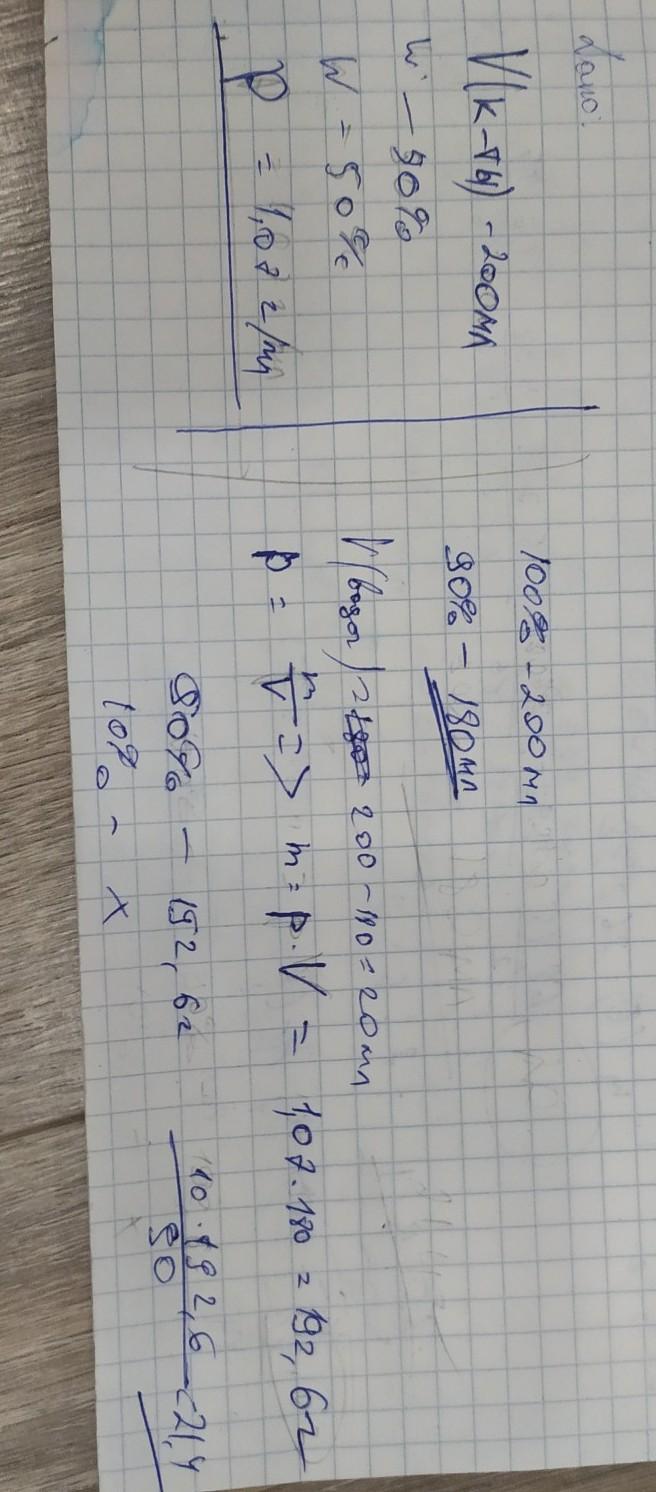 Дано:
V(к-ты) - 200мл
W - 90%
W = 90%
p = 1,07 г/мл
100% - 200мл
90% - 180мл
V(вода) = 200 - 180 = 20мл
p = m/V => m = p · V = 1,07 · 180 = 192,6г
90% - 192,6г
10% - x
10 · 192,6 / 90 = 21,4